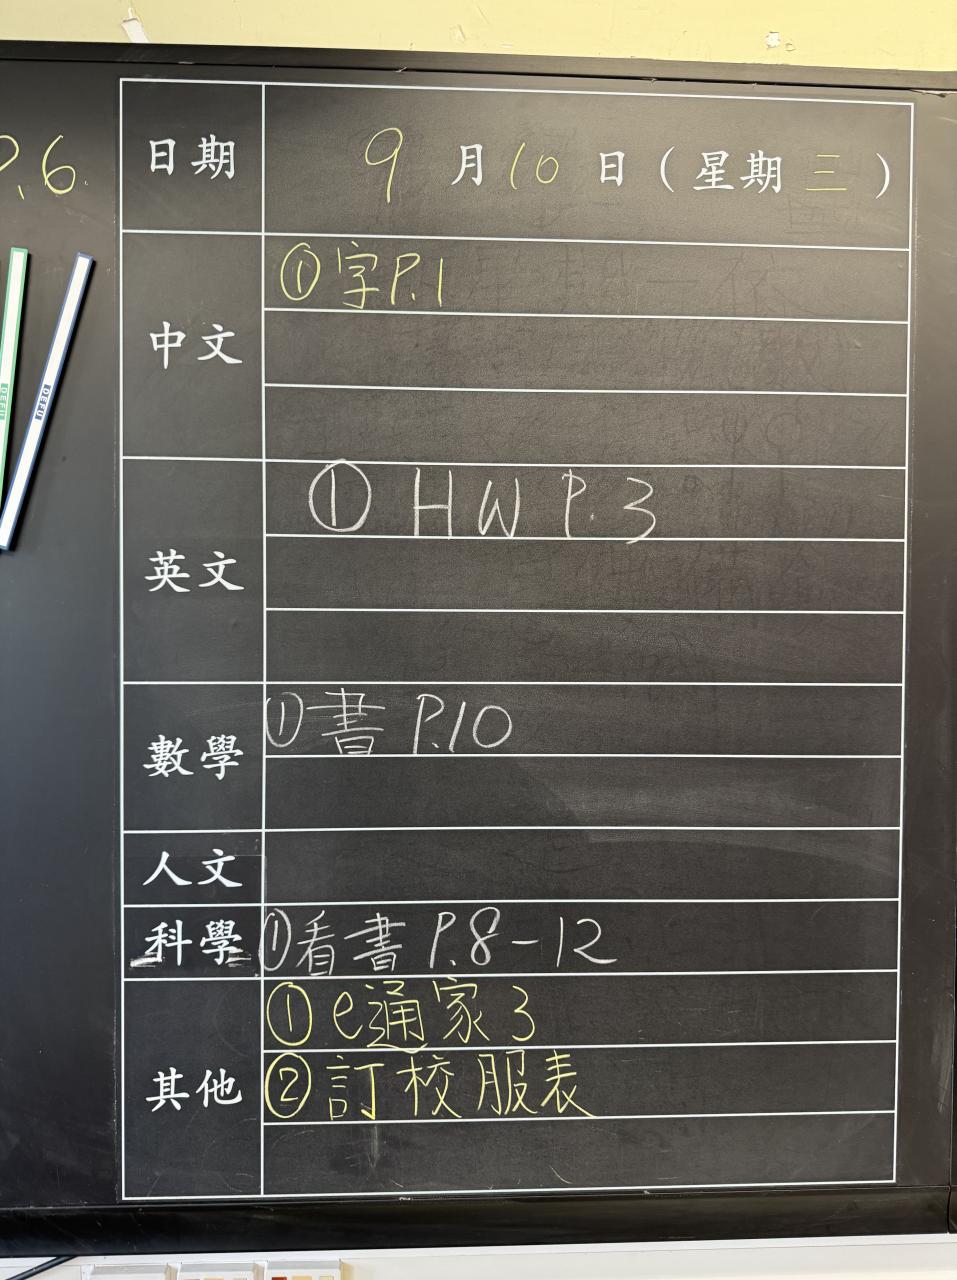 P.6.
日期 9月10日(星期三)
中文 ①字P.1
英文 ① HW P.3
數學 ①書 P.10
人文
科學 ①看書 P.8-12
其他 ①e通家3
②訂校服表
DEFU
DEFU